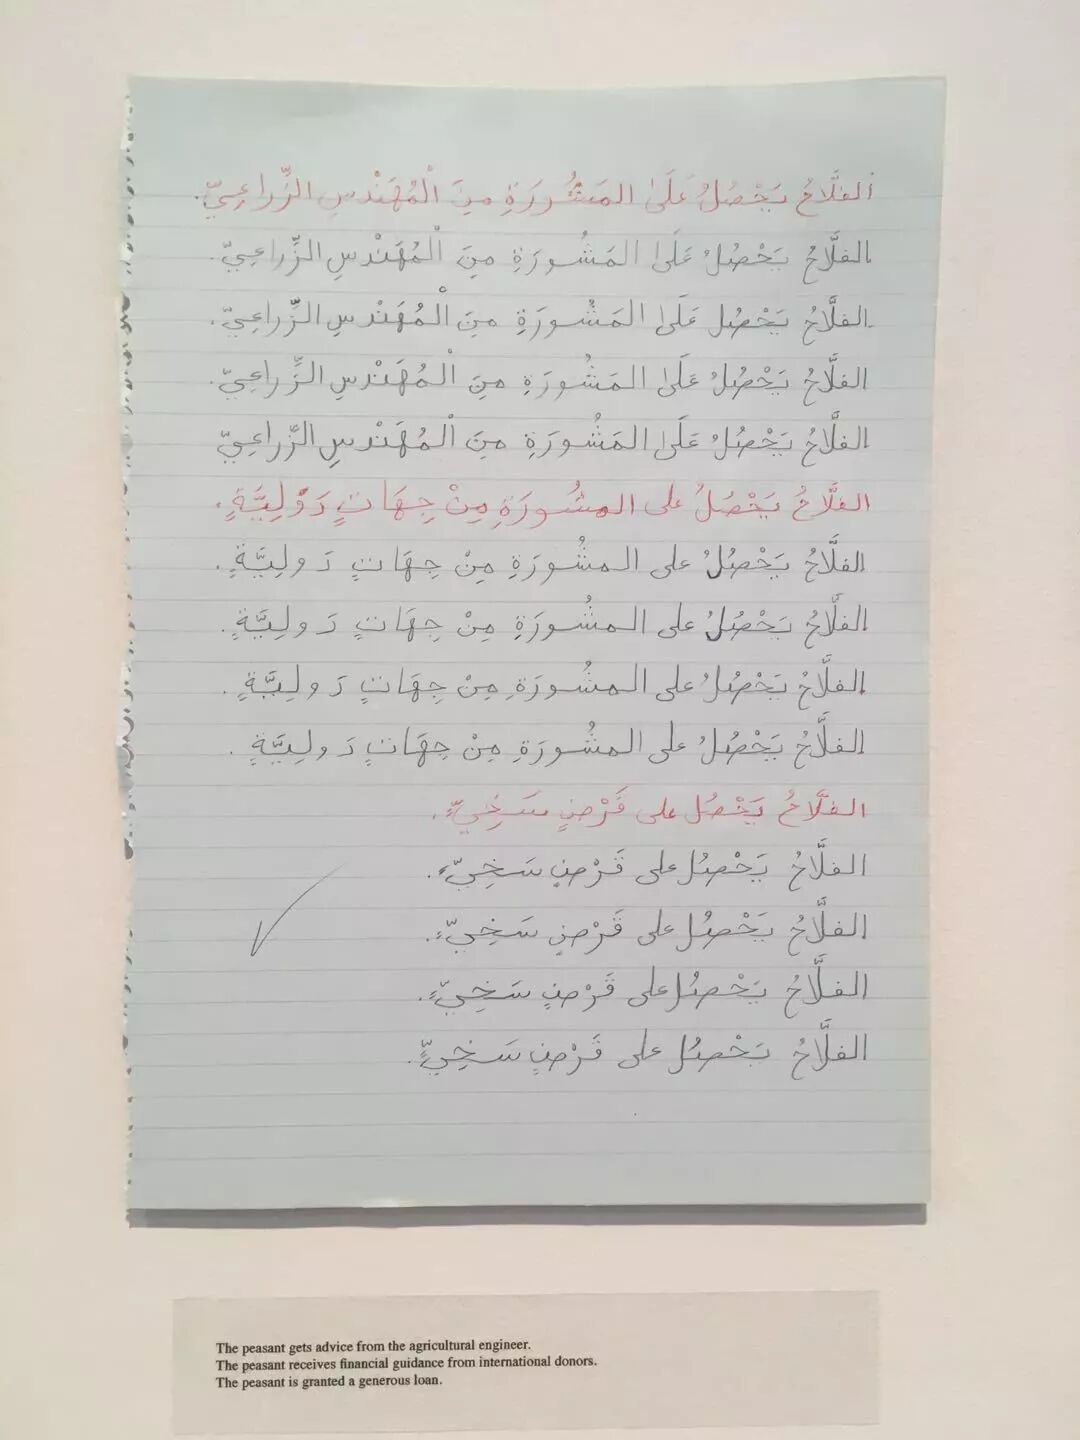 الفلَّاحُ يَحْصُلُ عَلَىٰ المَشُورَةِ مِنَ الْمُهَنْدِسِ الزِّراعِيّ.
الفلَّاحُ يَحْصُلُ عَلَىٰ المَشُورَةِ مِنَ الْمُهَنْدِسِ الزِّراعِيّ.
الفلَّاحُ يَحْصُل عَلَىٰ المَشُورَةِ مِنَ الْمُهَنْدِسِ الزِّراعِيّ.
الفلَّاحُ يَحْصُلُ عَلَىٰ المَشُورَةِ مِنَ الْمُهَنْدِسِ الزِّراعِيّ.
الفلَّاحُ يَحْصُلُ عَلَىٰ المَشُورَةِ مِنَ الْمُهَنْدِسِ الزِّراعِيّ
الفلَّاحُ يَحْصُلُ على المشُورَةِ مِنْ جِهَاتٍ دَوْلِيَّةٍ.
الفلَّاحُ يَحْصُلُ على المشُورَةِ مِنْ جِهَاتٍ دَولِيَّةٍ.
الفلَّاحُ يَحْصُلُ على المشُورَةِ مِنْ جِهَاتٍ دَولِيَّةٍ.
الفلَّاحُ يَحْصُلُ على المشُورَةِ مِنْ جِهَاتٍ دَولِيَّةٍ.
الفلَّاحُ يَحْصُلُ على المشُورَةِ مِنْ جِهَاتٍ دَولِيَّةٍ.
الفلَّاحُ يَحْصُل على قَرْضٍ سَخِيّءٍ.
الفلَّاحُ يَحْصُل على قَرْضٍ سَخِيّءٍ.
الفلَّاحُ يَحْصُل على قَرْضٍ سَخِيّءٍ.
الفلَّاحُ يَحْصُل على قَرْضٍ سَخِيّءٍ.
الفلَّاحُ يَحْصُل على قَرْضٍ سَخِيّءٍ.
The peasant gets advice from the agricultural engineer.
The peasant receives financial guidance from international donors.
The peasant is granted a generous loan.